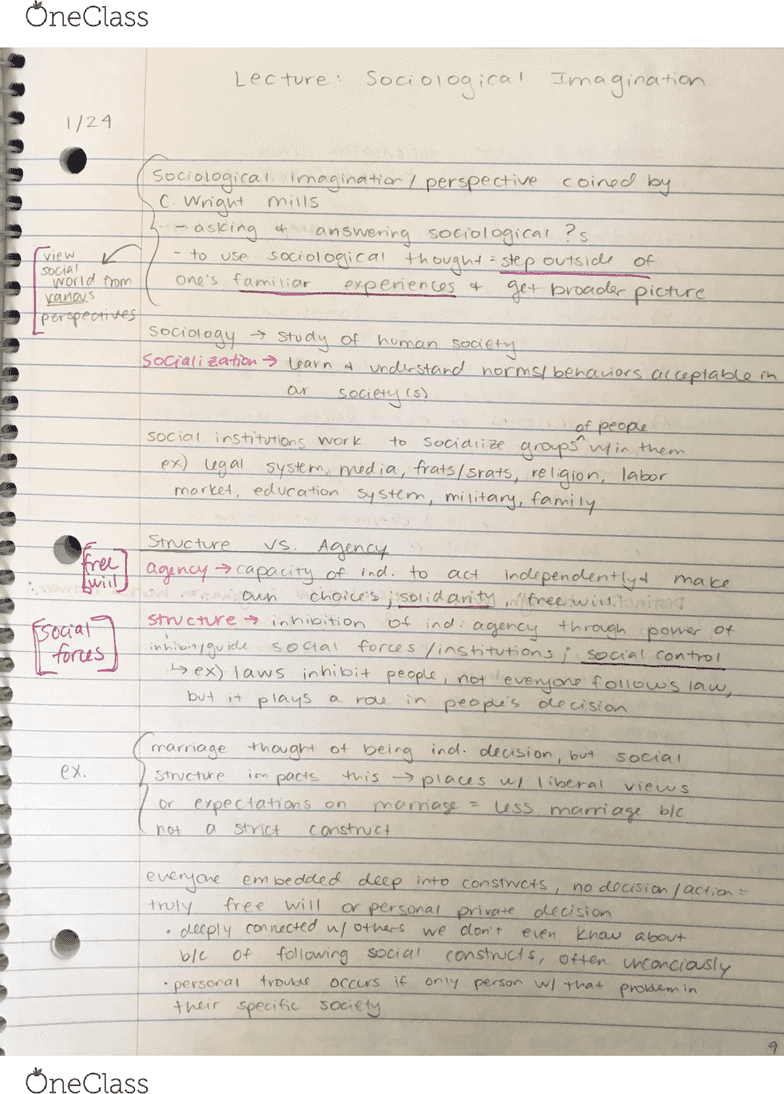 OneClass
Lecture: Sociological Imagination
1/24
sociological imagination/perspective coined by
C. Wright Mills
- asking & answering sociological ?s
- to use sociological thought = step outside of
one's familiar experiences & get broader picture
view
social
world from
various
perspectives
sociology → study of human society
socialization → learn & understand norms/behaviors acceptable in
our society(s)
of people
social institutions work to socialize groups ^ w/in them
ex) legal system, media, frats/srats, religion, labor
market, education system, military, family
Structure vs. Agency
free
will
agency → capacity of ind. to act independently & make
own choices; solidarity "free will"
social
forces
structure → inhibition of ind. agency through power of
inhibit/guide social forces/institutions; social control
↳ ex) laws inhibit people, not everyone follows law,
but it plays a role in people's decision
ex.
marriage thought of being ind. decision, but social
structure impacts this → places w/ liberal views
or expectations on marriage = less marriage b/c
not a strict construct
everyone embedded deep into constructs, no decision/action =
truly free will or personal private decision
• deeply connected w/ others we don't even know about
b/c of following social constructs, often unconciously
• personal trouble occurs if only person w/ that problem in
their specific society
9
OneClass